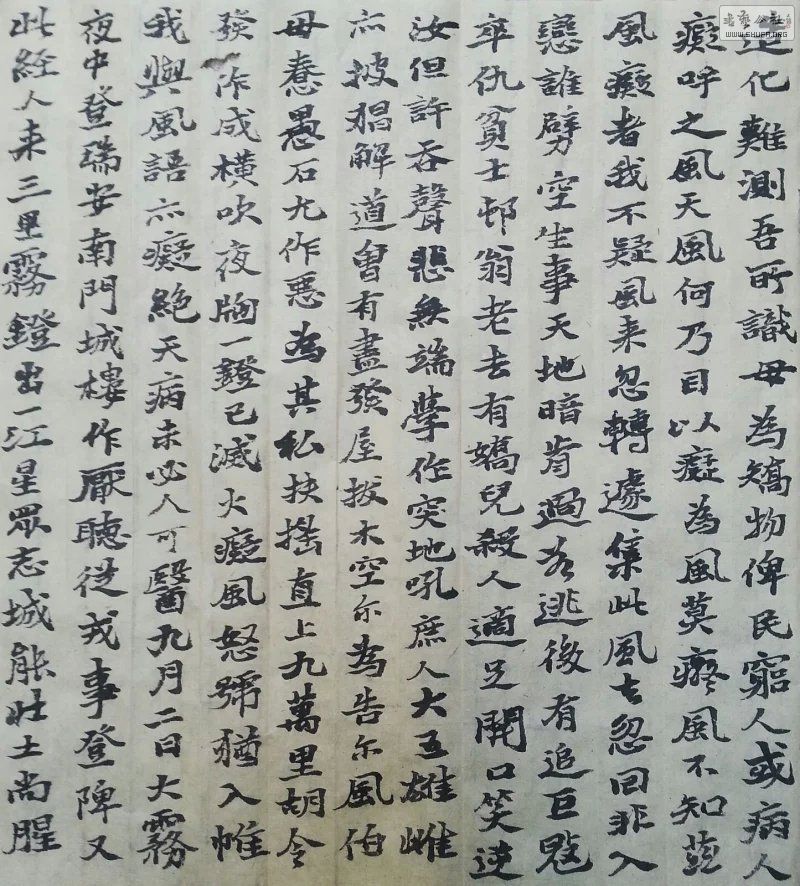 造化難測吾所識毋為矯物俾民窮人或病人
癡呼之風天風何乃目以癡為風莫癡風不知
風癡者我不疑風来忽轉遽集此風去忽回非入
戀誰劈空生事天地暗肯過為逃後有追巨
卒仇貧士邨翁老去有嬌兒殺人適足開口笑逆
汝但許吞聲悲無端孽作突地吼庶人大王雄雌
亦披猖解道曾有盡發屋拔木空尔為告尔風伯
毋惷愚石尤作惡為其私扶搖直上九萬里胡令
發作成橫吹夜朐一鐙已滅火癡風怒號猶入帷
我與風語亦癡絕天病未必人可醫九月二日大霧
夜中登瑞安南門城樓作厭聽從戎事登陴又
此經人来三里霧鐙出一江星眾志城能壮土尚腥
書藝公社
WWW.SHUFA.ORG